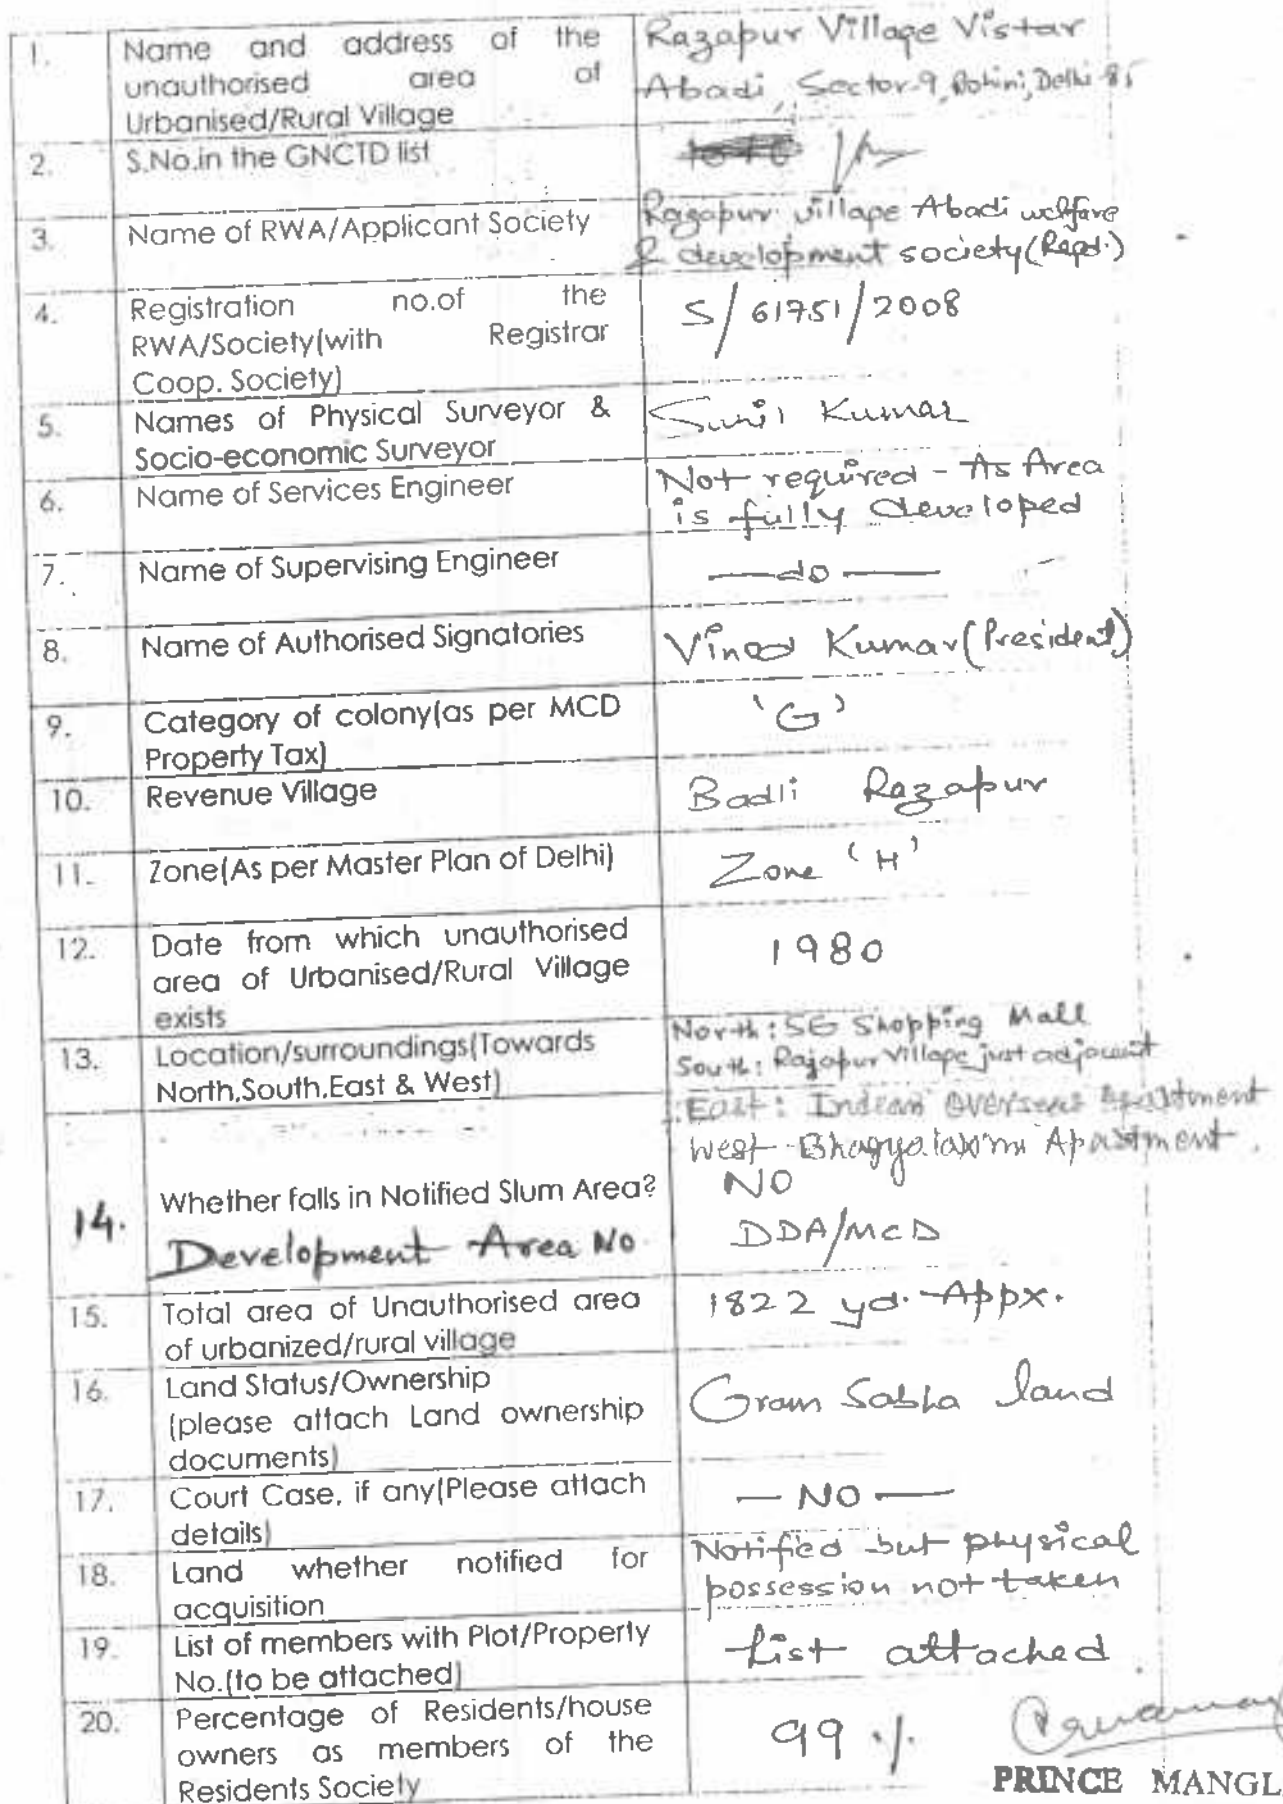 1. Name and address of the Razapur Village Vistar
unauthorised area of Abadi, Sector-9, Rohini, Delhi-85
Urbanised/Rural Village
2. S.No.in the GNCTD list
3. Name of RWA/Applicant Society Razapur village Abadi welfare
& development society (Regd.)
4. Registration no.of the S/61751/2008
RWA/Society(with Registrar
Coop. Society)
5. Names of Physical Surveyor & Sunil Kumar
Socio-economic Surveyor
6. Name of Services Engineer Not required - As Area
is fully developed
7. Name of Supervising Engineer —do—
8. Name of Authorised Signatories Vinod Kumar (President)
9. Category of colony(as per MCD 'G'
Property Tax)
10. Revenue Village Badli Razapur
11. Zone(As per Master Plan of Delhi) Zone 'H'
12. Date from which unauthorised 1980
area of Urbanised/Rural Village
exists
13. Location/surroundings(Towards North: SG Shopping Mall
North,South,East & West) South: Rajapur Village just adjacent
East: Indian Overseas Apartment
West - Bhagyalaxmi Apartment.
14. Whether falls in Notified Slum Area? NO
Development Area No. DDA/MCD
15. Total area of Unauthorised area 1822 yd. Appx.
of urbanized/rural village
16. Land Status/Ownership Gram Sabha land
(please attach Land ownership
documents)
17. Court Case, if any(Please attach — NO —
details)
18. Land whether notified for Notified but physical
acquisition possession not taken
19. List of members with Plot/Property List attached
No.(to be attached)
20. Percentage of Residents/house 99 %
owners as members of the
Residents Society
PRINCE MANGL